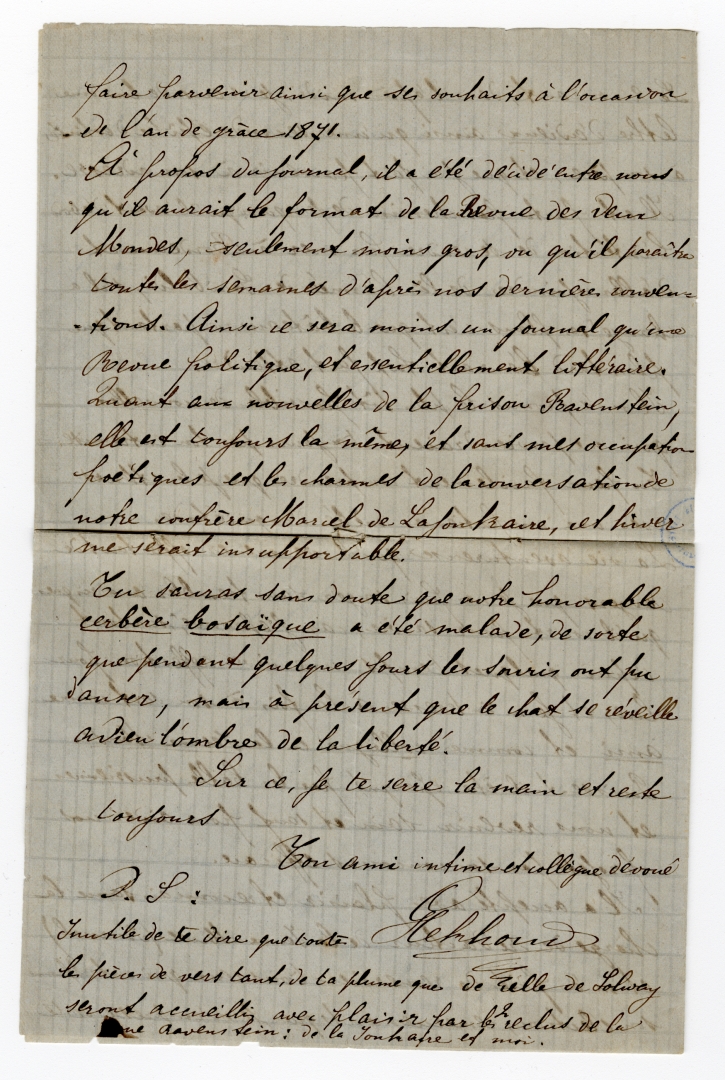 faire parvenir ainsi que ses souhaits à l'occasion
de l'an de grâce 1871.
A propos du journal, il a été décidé entre nous
qu'il aurait le format de la Revue des deux
Mondes, seulement moins gros, vu qu'il paraîtra
toutes les semaines d'après nos dernières conven-
-tions. Ainsi ce sera moins un journal qu'une
Revue politique, et essentiellement littéraire.
Quant aux nouvelles de la prison Ravenstein,
elle est toujours la même, et sans mes occupations
poétiques et les charmes de la conversation de
notre confrère Marcel de Lafontraire, cet hiver
me serait insupportable.
Tu sauras sans doute que notre honorable
cerbère bosaïque a été malade, de sorte
que pendant quelques jours les souris ont pu
danser, mais à présent que le chat se réveille
adieu l'ombre de la liberté.
Sur ce, je te serre la main et reste
toujours
Ton ami intime et collègue dévoué
P. S :
Inutile de te dire que toute
les pièces de vers tant de ta plume que de Zelle de Solway
seront accueilli avec plaisir par les 2 reclus de la
rue Ravenstein : de la Fontraire et moi.